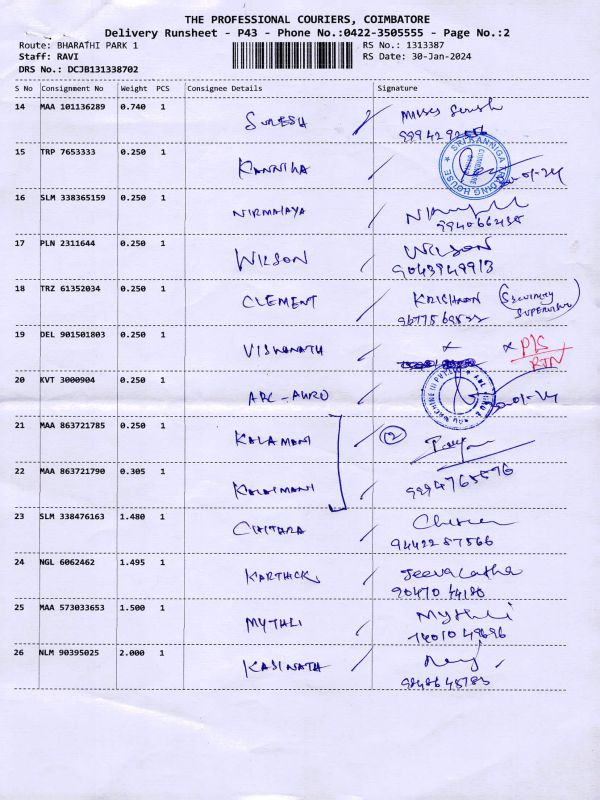 THE PROFESSIONAL COURIERS, COIMBATORE
Delivery Runsheet - P43 - Phone No.:0422-3505555 - Page No.:2
Route: BHARATHI PARK 1 RS No.: 1313387
Staff: RAVI RS Date: 30-Jan-2024
DRS No.: DCJB131338702
S No Consignment No Weight PCS Consignee Details Signature
14 MAA 101136289 0.740 1 SURESH
15 TRP 7653333 0.250 1 KANNIKA
SRI KANNIGA TRADING HOUSE
16 SLM 338365159 0.250 1 NIRMALAYA
17 PLN 2311644 0.250 1 WILSON WILSON
9043949913
18 TRZ 61352034 0.250 1 CLEMENT KRISHNAN (SECURITY
SUPERVISOR)
19 DEL 901501803 0.250 1 VISWANATH
20 KVT 3000904 0.250 1
21 MAA 863721785 0.250 1 KALAMANI 2
22 MAA 863721790 0.305 1 KALAIMANI
9994765596
23 SLM 338476163 1.480 1 CHITARA
9442257566
24 NGL 6062462 1.495 1 KARTHICK Jeevalatha
90470 44180
25 MAA 573033653 1.500 1 MYTHLI Mythli
26 NLM 90395025 2.000 1 KASINATH